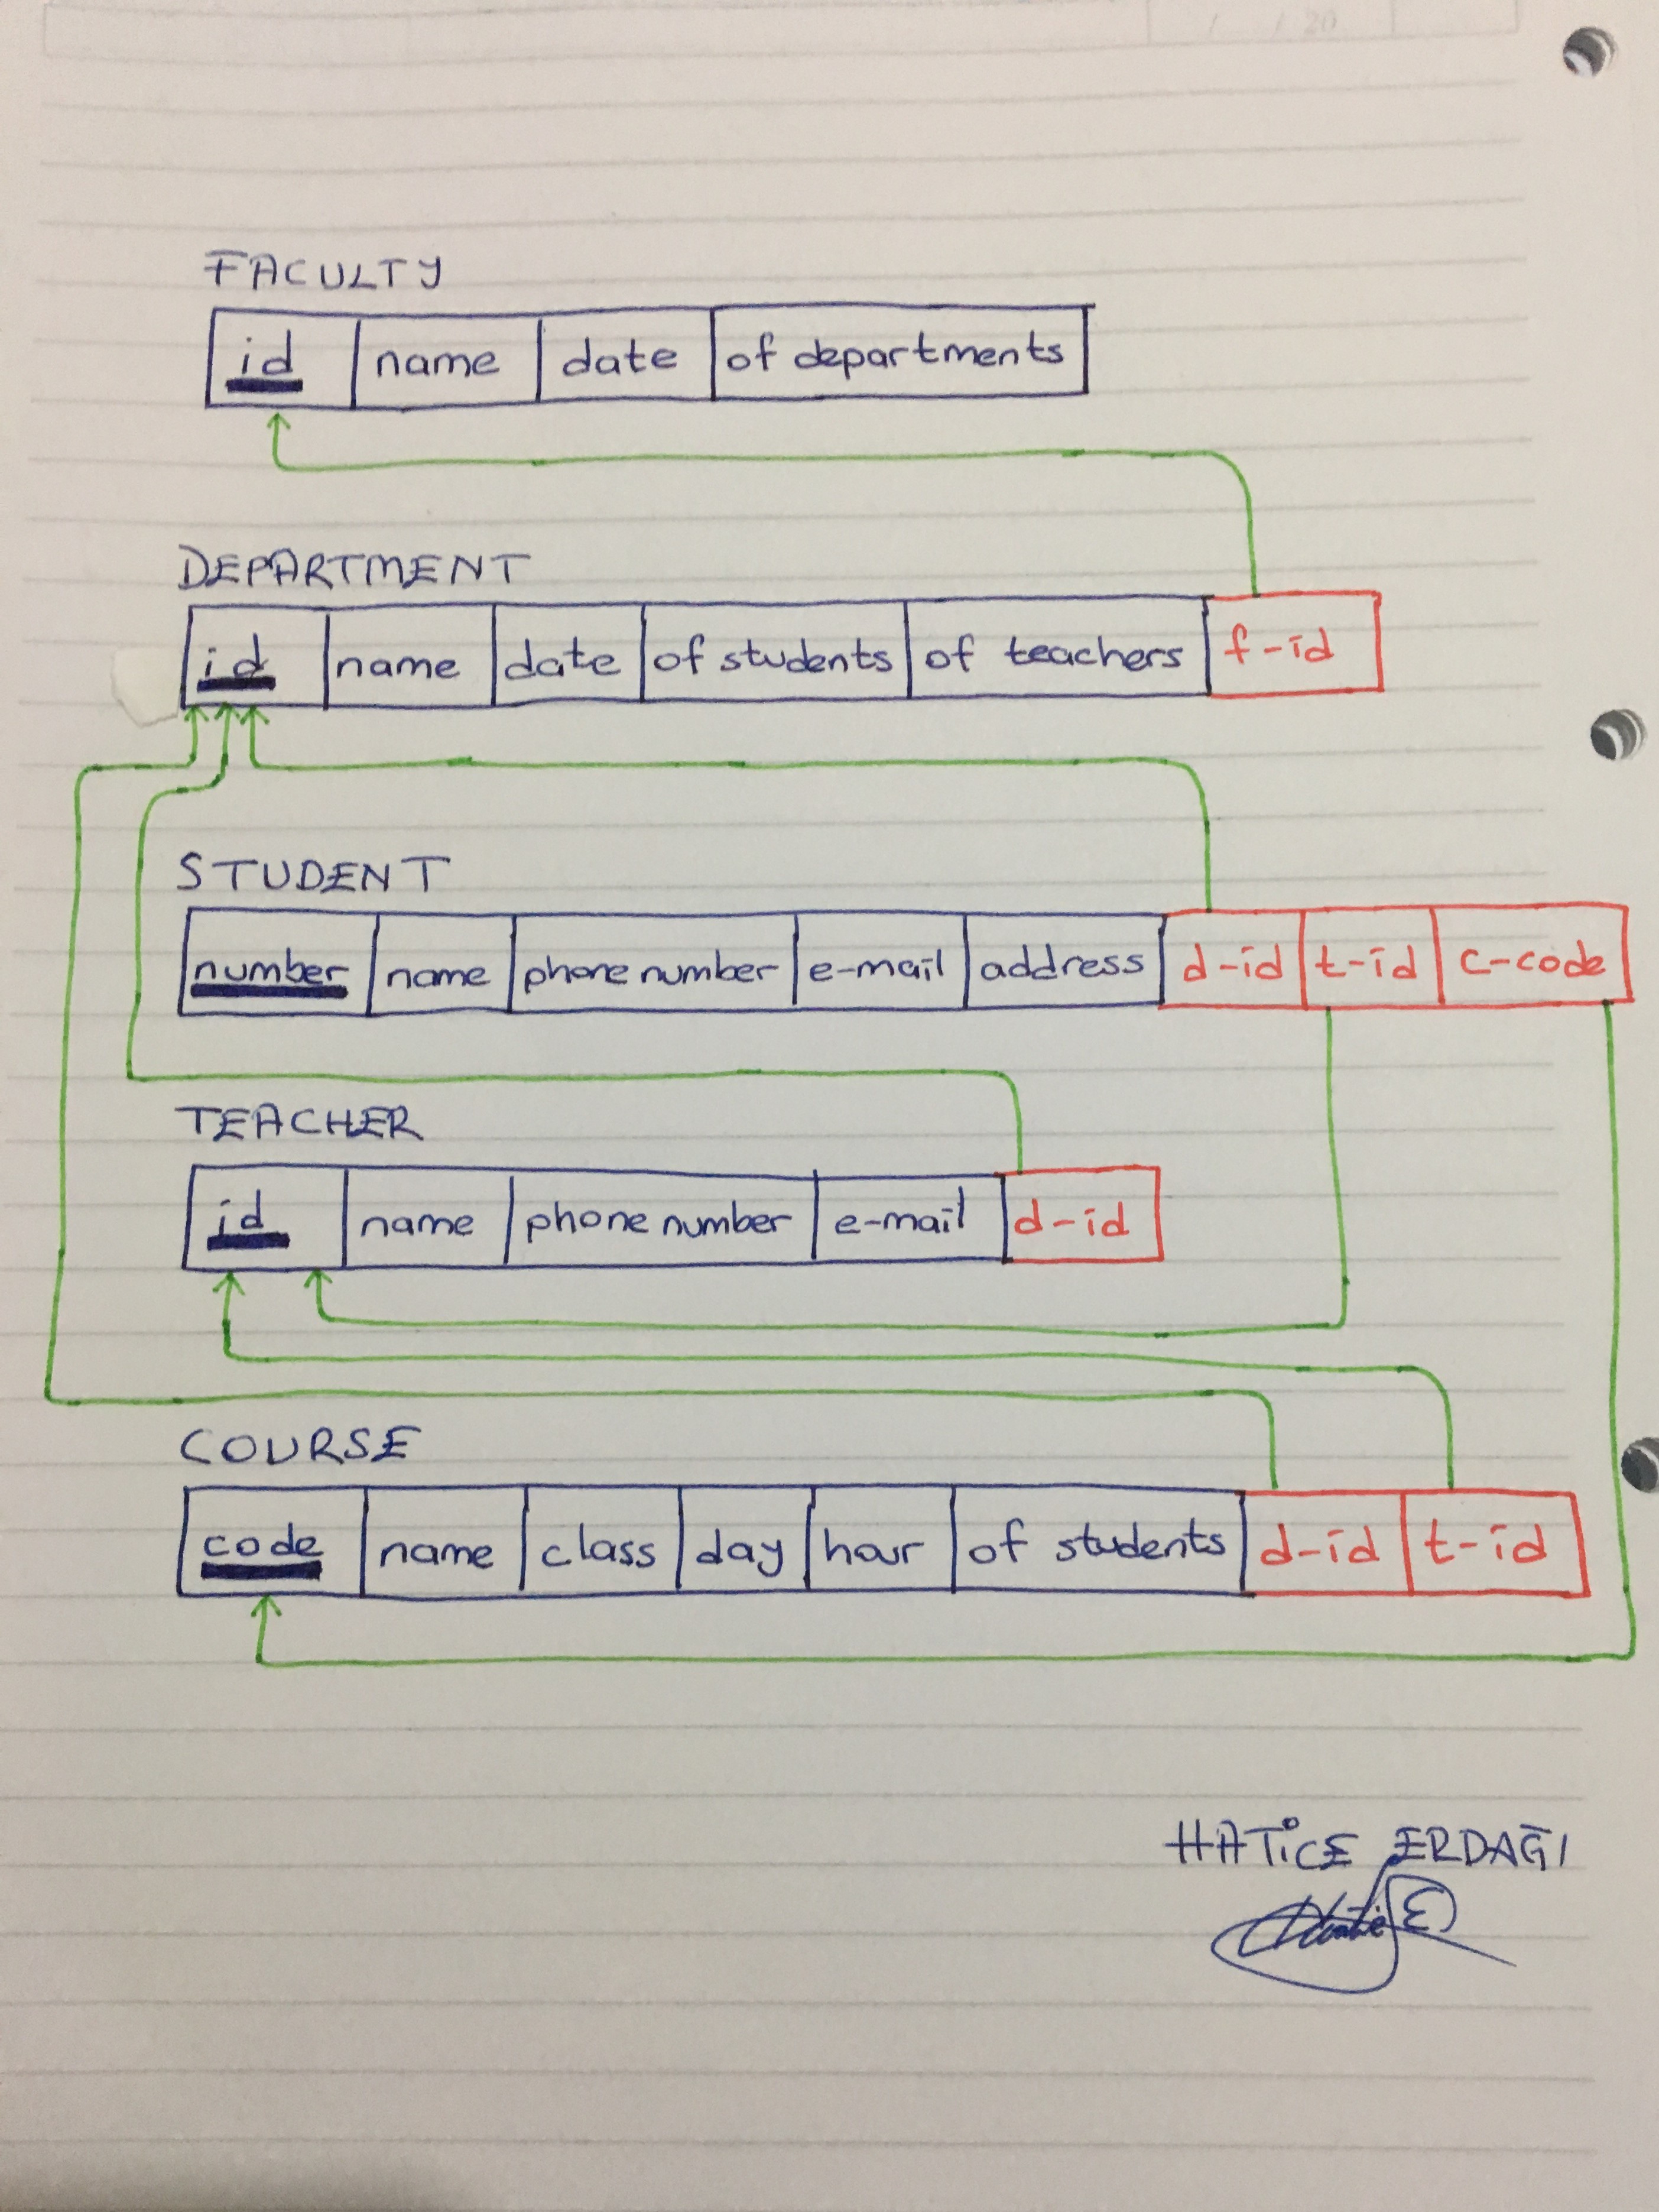 / / 20
FACULTY
id name date of departments
DEPARTMENT
id name date of students of teachers f-id
STUDENT
number name phone number e-mail address d-id t-id c-code
TEACHER
id name phone number e-mail d-id
COURSE
code name class day hour of students d-id t-id
HATİCE ERDAĞI